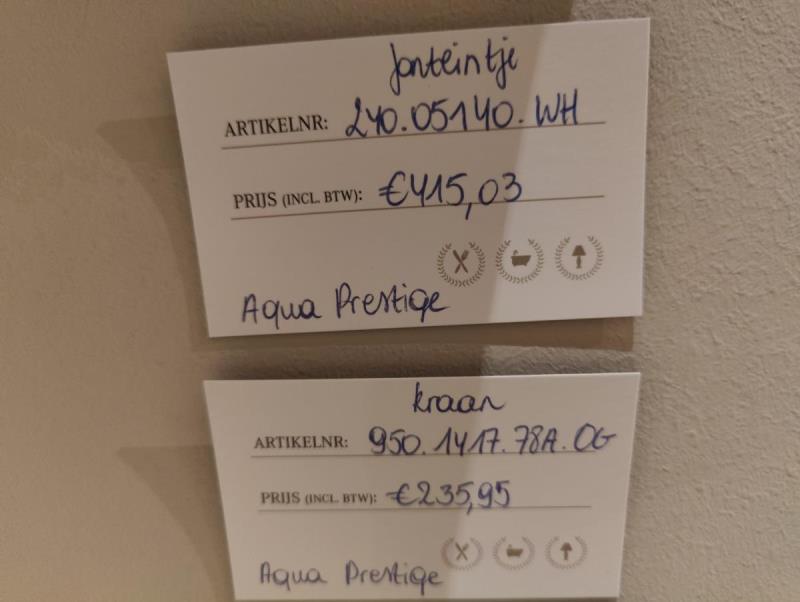 fonteintje
ARTIKELNR: 240.05140.WH
PRIJS (INCL. BTW): €415,03
Aqua Prestige
kraan
ARTIKELNR: 950.1417.78A.OG
PRIJS (INCL. BTW): €235,95
Aqua Prestige